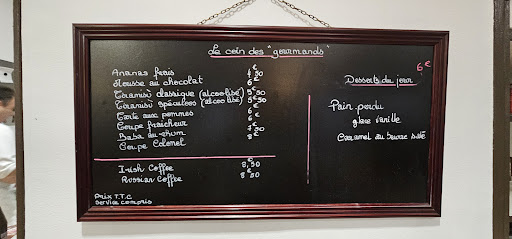 Le coin des "gourmands"
Ananas frais 4€50
Mousse au chocolat 6€
Tiramisù classique (alcoolisé) 5€50
Tiramisù spéculoos (alcoolisé) 5€50
Tarte aux pommes 6€
Coupe fraîcheur 6€
Baba au rhum 7€50
Coupe Colonel 8€
Irish Coffee 8,50
Russian Coffee 8€50
Prix T.T.C
Service compris
6€
Desserts du jour
Pain perdu
glace vanille
Caramel au beurre salé